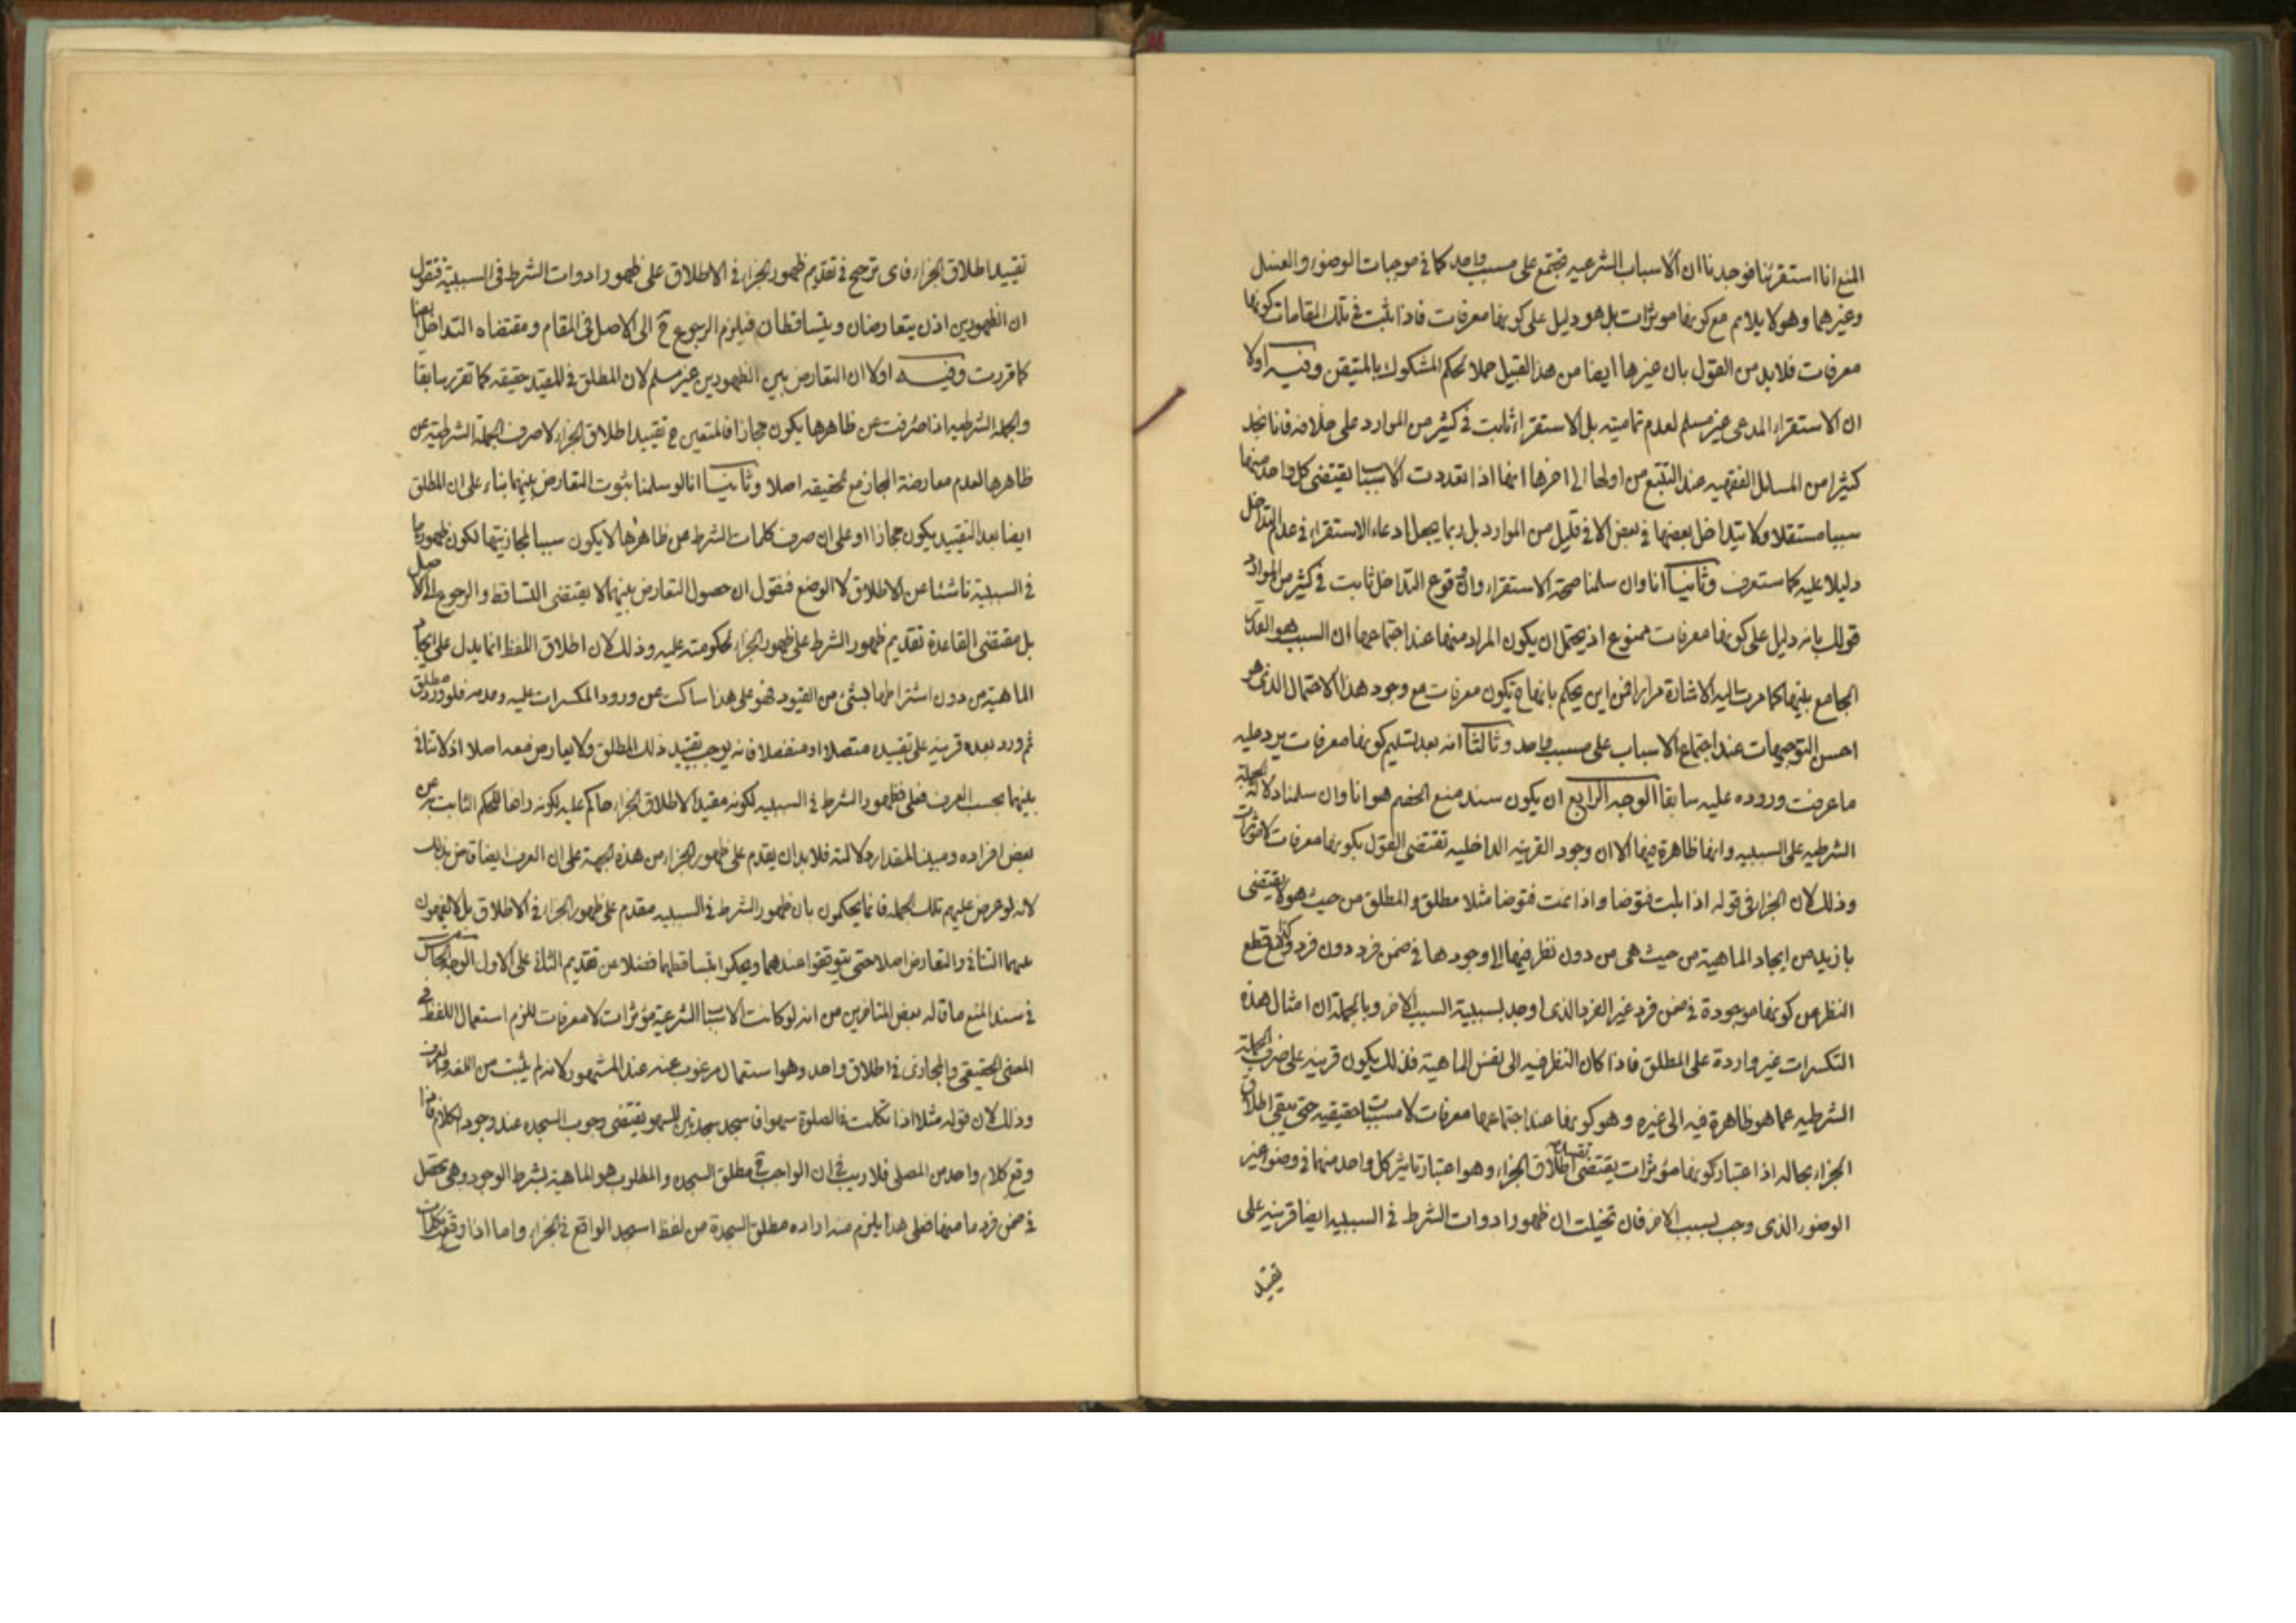 المنع انا استقرئنا فوجدنا ان الاسباب الشرعيه تجتمع على مسبب واحد كما في موجبات الوضوء والغسل
وغيرهما وهو لا يلائم مع كونها موثرات بل هو دليل على كونها معرفات فاذا ثبت في تلك المقامات كونها
معرفات فلا بد من القول بان غيرها ايضا من هذا القبيل حملا لحكم المشكوك بالمتيقن وفيه اولا
ان الاستقراء المدعى غير مسلم لعدم تماميته بل الاستقراء ثابت في كثير من الموارد على خلافه فانا نجد
كثيرا من المسائل الفقهيه عند التتبع من اولها الى اخرها انها اذا تعددت الاسباب يقتضى كل واحد منها
سببا مستقلا ولا يتداخل بعضها في بعض الا في قليل من الموارد بل ربما يجعل ادعاء الاستقراء في عدم التداخل
دليلا عليه كما ستعرف وثانيا انا وان سلمنا صحة الاستقراء وان وقوع التداخل ثابت في كثير من الموارد
قولك بانه دليل على كونها معرفات ممنوع اذ يحتمل ان يكون المراد منها عند اجتماعها ان السبب هو القدر
الجامع بينها كما مرت اليه الاشارة مرارا فمن اين يحكم بانها ح يكون معرفات مع وجود هذا الاحتمال الذى هو
احسن التوجيهات عند اجتماع الاسباب على مسبب واحد وثالثا انه بعد تسليم كونها معرفات يرد عليه
ما عرفت وروده عليه سابقا الوجه الرابع ان يكون سند منع الخصم هو انا وان سلمنا دلالة الجملة
الشرطيه على السببيه وانها ظاهرة فيها الا ان وجود القرينه الداخليه تقتضى القول بكونها معرفات لا موثرات
وذلك لان الجزاء في قوله اذا بلت فتوضا واذا نمت فتوضا مثلا مطلق والمطلق من حيث هو لا يقتضى
بازيد من ايجاد الماهية من حيث هى من دون نظر فيها الى وجودها في ضمن فرد دون فرد قطع
النظر عن كونها موجودة في ضمن فرد غير الفرد الذى اوجد بسببية السبب الاخر وبالجملة ان امثال هذه
التكسرات غير واردة على المطلق فاذا كان النظر فيه الى نفس الماهية فذلك يكون قرينه على صرف الجملة
الشرطيه عما هو ظاهرة فيه الى غيره وهو كونها عند اجتماعها معرفات لا مسببات حقيقيه حتى يبقى اطلاق
الجزاء بحاله اذا اعتبار كونها مؤثرات يقتضى تقييد اطلاق الجزاء وهو اعتبار تاثير كل واحد منها في وضوء غير
الوضوء الذى وجب بسبب الاخر فان تخيلت ان ظهور ادوات الشرط في السببيه ايضا قرينه على
تقييد
تقييد اطلاق الجزاء فاى ترجيح في تقديم ظهور الجزاء في الاطلاق على ظهور ادوات الشرط فى السببية فنقول
ان الظهورين اذن يتعارضان ويتساقطان فيلزم الرجوع ح الى الاصل فى المقام ومقتضاه التداخل ايضا
كما قررت وفيه اولا ان التعارض بين الظهورين غير مسلم لان المطلق في المقيد حقيقه كما تقرر سابقا
والجملة الشرطيه اذا صرفت عن ظاهرها يكون مجازا فالمتعين ح تقييد اطلاق الجزاء لا صرف الجملة الشرطية عن
ظاهرها لعدم معارضة المجاز مع الحقيقه اصلا وثانيا انا لو سلمنا ثبوت التعارض بينهما بناء على ان المطلق
ايضا بعد التقييد يكون مجازا او على ان صرف كلمات الشرط عن ظاهرها لا يكون سببا لمجازيتها لكون ظهورها
في السببية ناشئا من الاطلاق لا الوضع فنقول ان حصول التعارض بينهما لا يقتضى التساقط والرجوع الى الاصل
بل مقتضى القاعدة تقديم ظهور الشرط على ظهور الجزاء لحكومته عليه وذلك لان اطلاق اللفظ انما يدل على ايجاد
الماهية من دون اشتراطها بشئ من القيود فهو على هذا ساكت عن ورود المكسرات عليه وعدمه فلو ورد مطلق
ثم ورد بعده قرينه على تقييده متصلا او منفصلا فانه يوجب تقييد ذلك المطلق ولا يعارض معه اصلا اذ لا تنافى
بينهما بحسب العرف فعلى ظهور الشرط في السببيه لكونه مقيدا لاطلاق الجزاء حاكم عليه لكونه رافعا للحكم الثابت عن
بعض افراده ومبينا لمقدار دلالته فلا بد ان يقدم على ظهور الجزاء من هذه الجهة على ان العرف ايضا قاض بذلك
لانه لو عرض عليهم تلك الجملة فانما يحكمون بان ظهور الشرط في السببيه مقدم على ظهور الجزاء في الاطلاق بل لا يفهمون
عنهما التنافى والتعارض اصلا حتى يتوقفوا عندهما ويحكموا بتساقطهما فضلا عن تقديم الثانى على الاول الوجه الخامس
في سند المنع ما قاله بعض المتاخرين من انه لو كانت الاسباب الشرعية مؤثرات لا معرفات للزم استعمال اللفظ في
المعنى الحقيقى والمجازى في اطلاق واحد وهو استعمال مرغوب عنه عند المشهور لانه لم يثبت من اللغه والعرف
وذلك لان قوله مثلا اذا تكلمت في الصلوة سهوا فاسجد سجدتين للسهو يقتضى وجوب السجده عند وجود الكلام فاذا
وقع كلام واحد من المصلى فلا ريب في ان الواجب ح مطلق السجده والمطلوب هو الماهية بشرط الوجود وهى تحصل
في ضمن فرد ما منها فعلى هذا يلزم منه اراده مطلق السجدة من لفظ اسجد الواقع في الجزاء واما اذا وقعت